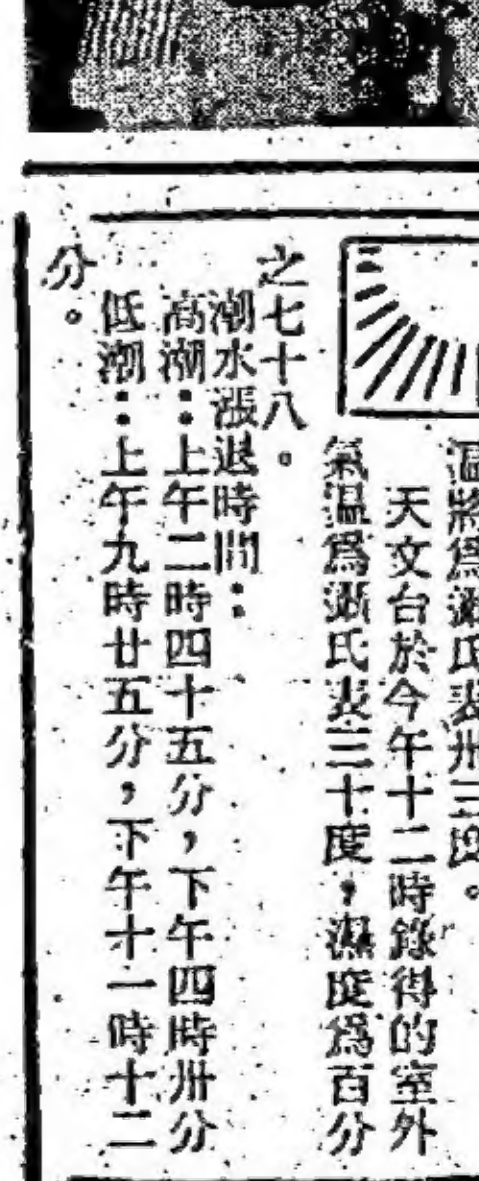 溫將為攝氏表卅三度。
天文台於今午十二時錄得的室外
氣溫爲攝氏表三十度，濕度爲百分
之七十八。
潮水漲退時間：
高潮：上午二時四十五分，下午四時卅分
低潮：上午九時廿五分，下午十一時十二
分。